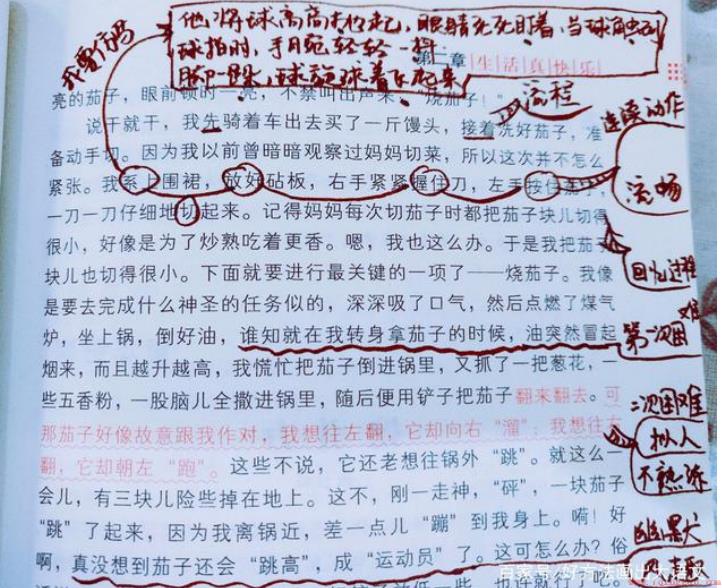 他将球高高抛起，眼睛死死盯着，当球触到
球拍时，手腕轻轻一抖
第二章 生活真快乐
我要仿写
流程
亮的茄子，眼前顿时一亮，不禁叫出声来："烧茄子！"
连续动作
说干就干，我先骑着车出去买了一斤馒头，接着洗好茄子，准
备动手切。因为我以前曾暗暗观察过妈妈切菜，所以这次并不怎么
紧张。我系上围裙，放好砧板，右手紧紧握住刀，左手按住茄子，
流畅
一刀一刀仔细地切起来。记得妈妈每次切茄子时都把茄子块儿切得
很小，好像是为了炒熟吃着更香。嗯，我也这么办。于是我把茄子
回忆过程
块儿也切得很小。下面就要进行最关键的一项了——烧茄子。我像
是要去完成什么神圣的任务似的，深深吸了口气，然后点燃了煤气
炉，坐上锅，倒好油，谁知就在我转身拿茄子的时候，油突然冒起
第一次困难
烟来，而且越升越高，我慌忙把茄子倒进锅里，又抓了一把葱花，一
些五香粉，一股脑儿全撒进锅里，随后便用铲子把茄子翻来翻去。可
二次困难
那茄子好像故意跟我作对，我想往左翻，它却向右"溜"；我想往右
拟人
翻，它却朝左"跑"。这些不说，它还老想往锅外"跳"。就这么一
不熟练
会儿，有三块儿险些掉在地上。这不，刚一走神，"砰"，一块茄子
"跳"了起来，因为我离锅近，差一点儿"蹦"到我身上。嗬！好
幽默
啊，真没想到茄子还会"跳高"，成"运动员"了。这可怎么办？俗
百家号/好方法画出大语文